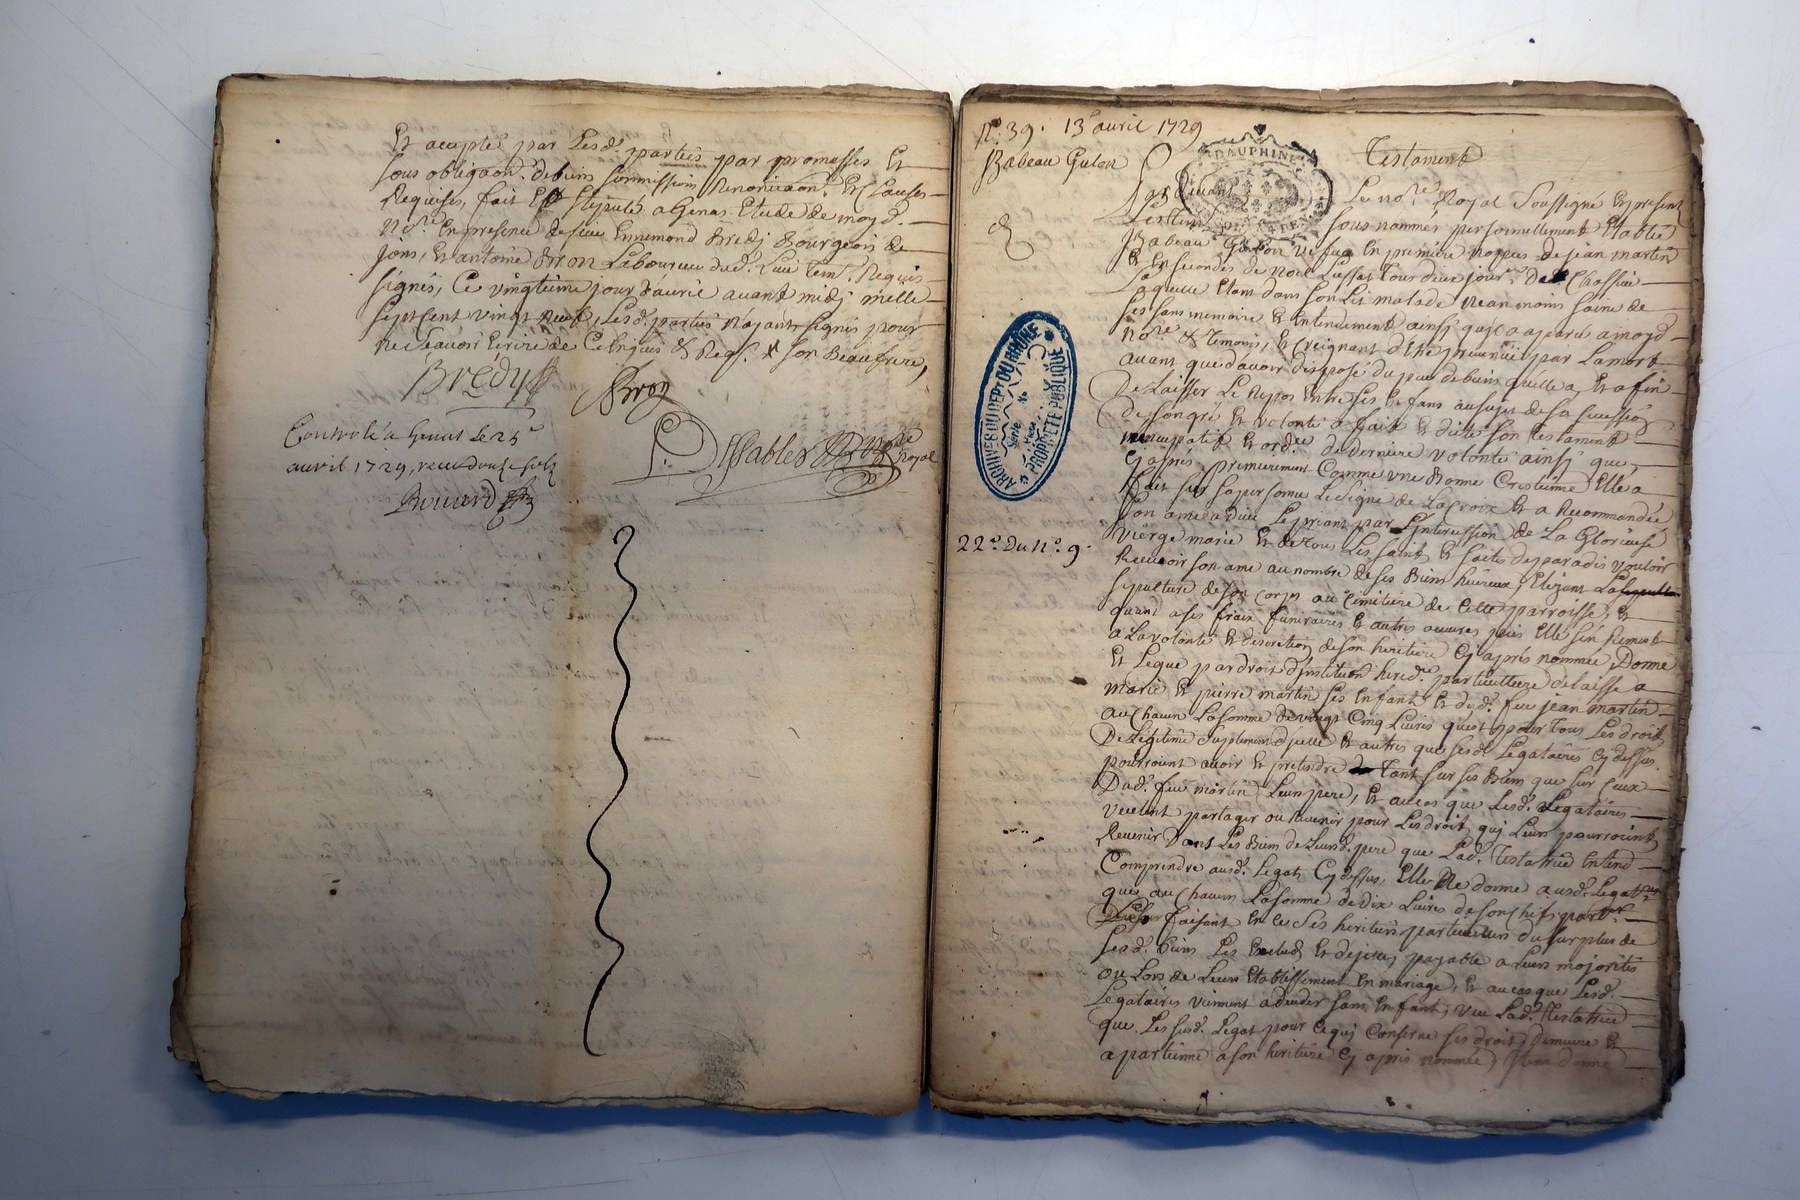 Et acepté par Lesd. parties par promesses Et
sous obligaon. de biens soumission Renonciaon. Et Clauses
Requises, fait Et stipulé a Genas Etude de moyd.
No.re En presence de sieur Ennemond Bredy Bourgeois de
Jons, Et antoine Bron Laboureur dud. Lieu tem. Requis
signés, Ce vingtieme jour d'avril avant midy mille
sept cent vingt neuf, Lesd. parties n'ayant signés pour
ne sçavoir Ecrire de Ce Enquis & Reqs. son Beaufrere,
Bredy
Bron
Dessables No.re Royal
Controlé a Genas Le 25e
avril 1729, receu douze sols
Bouvard
N.o 39. 13e avril 1729
Babeau Gulon
Testament
DAUPHINE
Pardevant Le no.re Royal Soussigné Et present
Les tem. sous nommés personnellement Etablie
Babeau Gulon veufve En premiere nopces de jean martin
& En secondes de noel Lussat tous deux jour.rs de Chassieu
Laquelle Etant dans son Lit malade neanmoins saine de
ses sens memoire Et Entendement ainsy qu'il a aparu a moyd.
No.re & Temoins, Et Creignant d'Etre prevenue par La mort
avant que d'avoir disposé du peu de biens qu'elle a, Et afin
De Laisser Le Repos Entre ses Enfans au sujet de sa succession
de son gré Et volonté a fait Et dicté son testament
nuncupatif Et ord.re de derniere volonté ainsy que
Cy après, premierement Comme une Bonne Crestienne Elle a
fait sur sa personne Le signe de La Croix Et a Recommandée
son ame a dieu Le priant par L'Intercession de La Glorieuse
Vierge marie Et de tous Les saint Et saites de paradis vouloir
22e. Du N.o 9.
Recevoir son ame au nombre de ses Biens heureux, Elizant La
sepulture de son Corps au Cimitiere de Cette parroisse, Et
quant a ses fraix funeraires Et autres œuvres pies Elle s'en Remet
a La volonté Et discretion de son heritiere Cy après nommée, Donne
Et Legue par droit d'institution hered.re particulliere delaisse a
marie Et pierre martin ses Enfant Et dud. feu jean martin
au Chacun La somme de vingt Cinq Livres qu'est pour tous Les droit
De Legitime Suplement d'jcelle Et autres que sesd. Legataires Cy dessus
pourroient avoir Et pretendre Tant sur ses Biens que sur Ceux
Dud. feu martin Leur pere, Et au cas que Lesd. Legataires
veulent partager ou Revenir pour Les droit quj Leurs pourroient
Revenir Dans Les Biens de Leurd. pere que Lad. Testatrice Entend
Comprendre ausd. Legats Cy dessus, Elle Ne donne a usd. Legat.res
que au Chacun La somme de Dix Livres de son Chef
faisant En Ce Ses heritiers particuliers du surplus de
sesd. biens Les Exclud Et dejette, payable a Leurs majorités
ou Lors de Leurs Etablissement En mariage, Et au cas que Lesd.
Legataires viennent a deceder sans Enfant, veu Lad. Testatrice
que Les susd. Legat pour Ce quj Conserne ses droit Demeure Et
apartienne a son heritiere Cy après nommée, Jtem donne
ARCHIVES DU DEPt DU RHÔNE
PROPRIÉTÉ PUBLIQUE
Série No